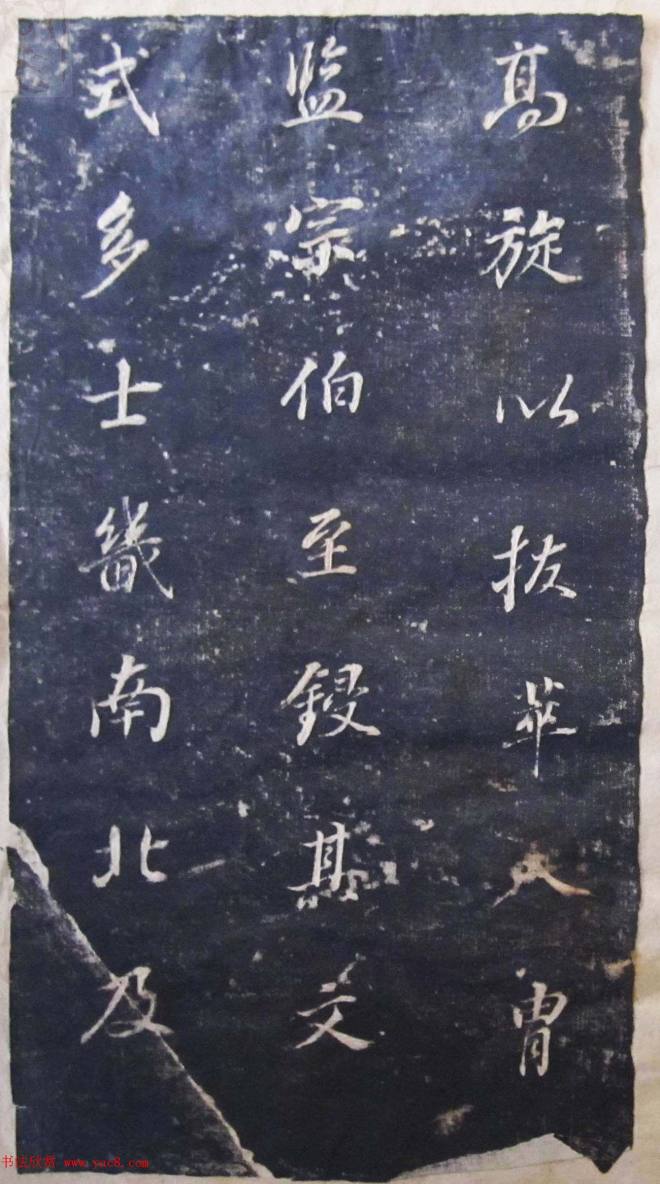 高旋以拔萃入胄
监宗伯至鋟其文
式多士畿南北及
书法欣赏 www.yac8.com